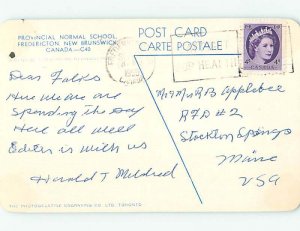 PROVINCIAL NORMAL SCHOOL,
FREDERICTON, NEW BRUNSWICK,
CANADA—C43
POST CARD
CARTE POSTALE
HEALTH
CANADA
Dear Folks
Here we are
Spending the day
Here all well
Edith is with us
Harold & Mildred
Mr & Mrs R B Applebee
RFD #2
Stockton Springs
Maine
USA
THE PHOTOGELATINE ENGRAVING CO. LTD. TORONTO